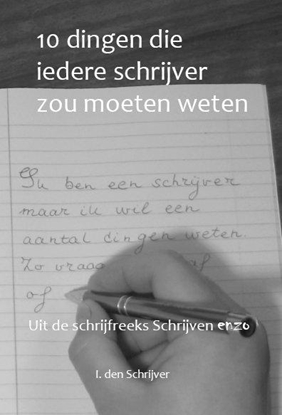 10 dingen die
iedere schrijver
zou moeten weten
Ik ben een schrijver
maar ik wil een
aantal dingen weten.
Zo vraag af
of
Uit de schrijfreeks Schrijven enzo
I. den Schrijver